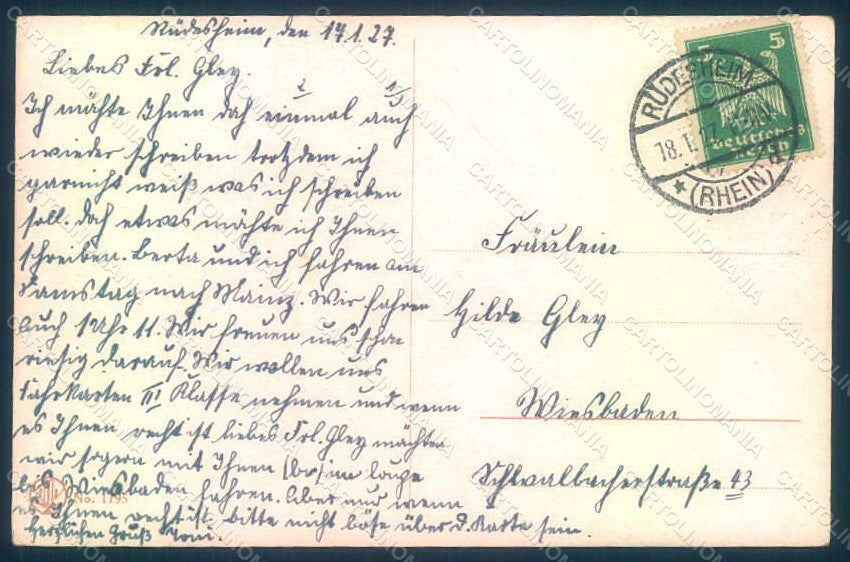 Rüdesheim, den 17.1.27.
Liebes Frl. Gley.
Ich mächte Ihnen doch einmal auch
wieder schreiben trotzdem ich
garnicht weiß was ich schreiben
soll. Doch etwas mächte ich Ihnen
schreiben. Berta und ich fahren am
Samstag nach Mainz. Wir fahren
auch 1 Uhr 11. Wir freuen uns schon
riesig darauf. Wir wollen uns
Fahrkarten III Klasse nehmen und wenn
es Ihnen recht ist liebes Frl. Gley mächten
wir so gern mit Ihnen
bis Wiesbaden fahren. Aber nur wenn
es Ihnen recht ist, bitte nicht böse über d. Karte sein.
Herzlichen Gruß Toni.
No. 1195
5 5
Deutsches
Reich
RÜDESHEIM
18.1.27
(RHEIN)
Fräulein
Hilde Gley
Wiesbaden
Schwalbacherstraße 43
CARTOLINOMANIA